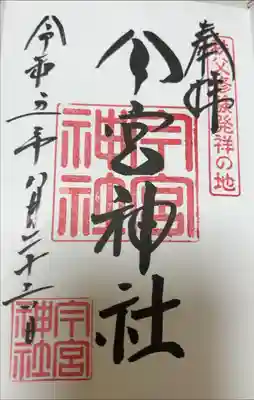 秩父修験発祥の地
奉拝
今宮神社
今宮神社
令和五年八月二十三日
今宮神社